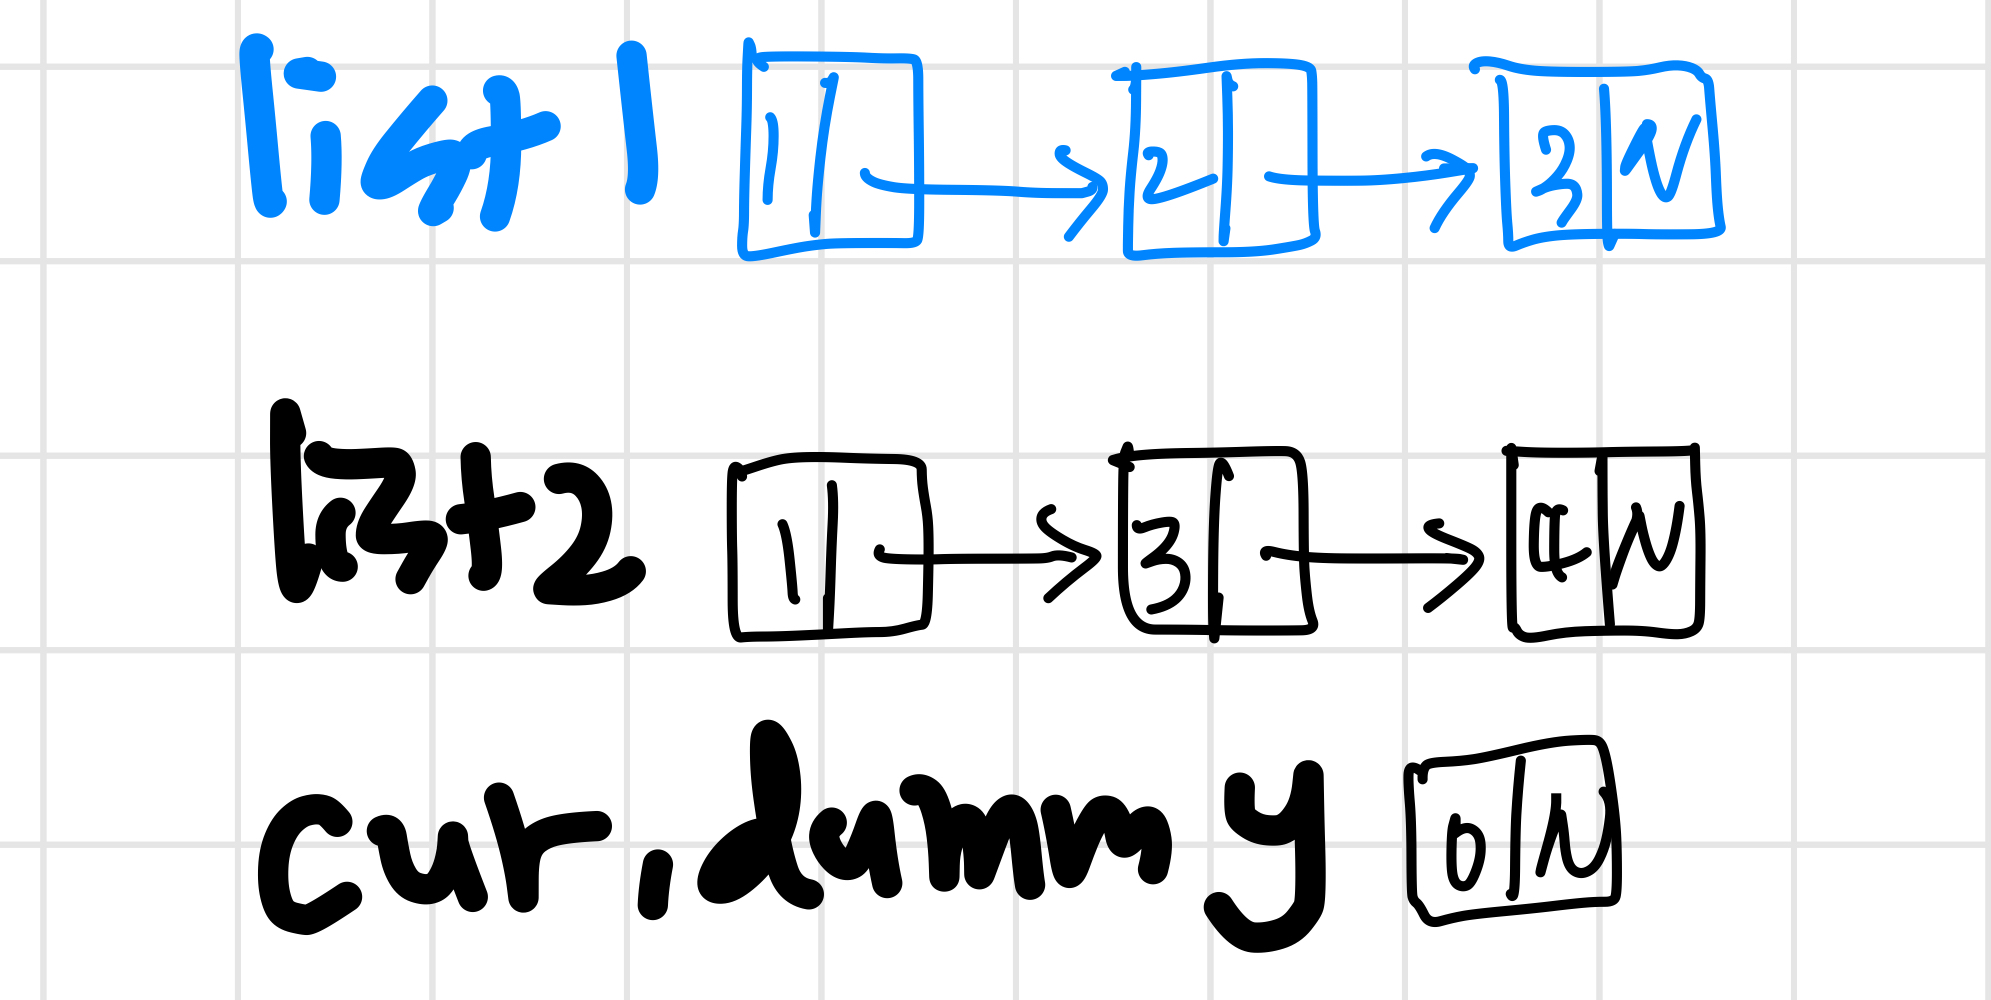 list 1 1 2 3 N
list2 1 3 4 N
cur, dummy 0 N